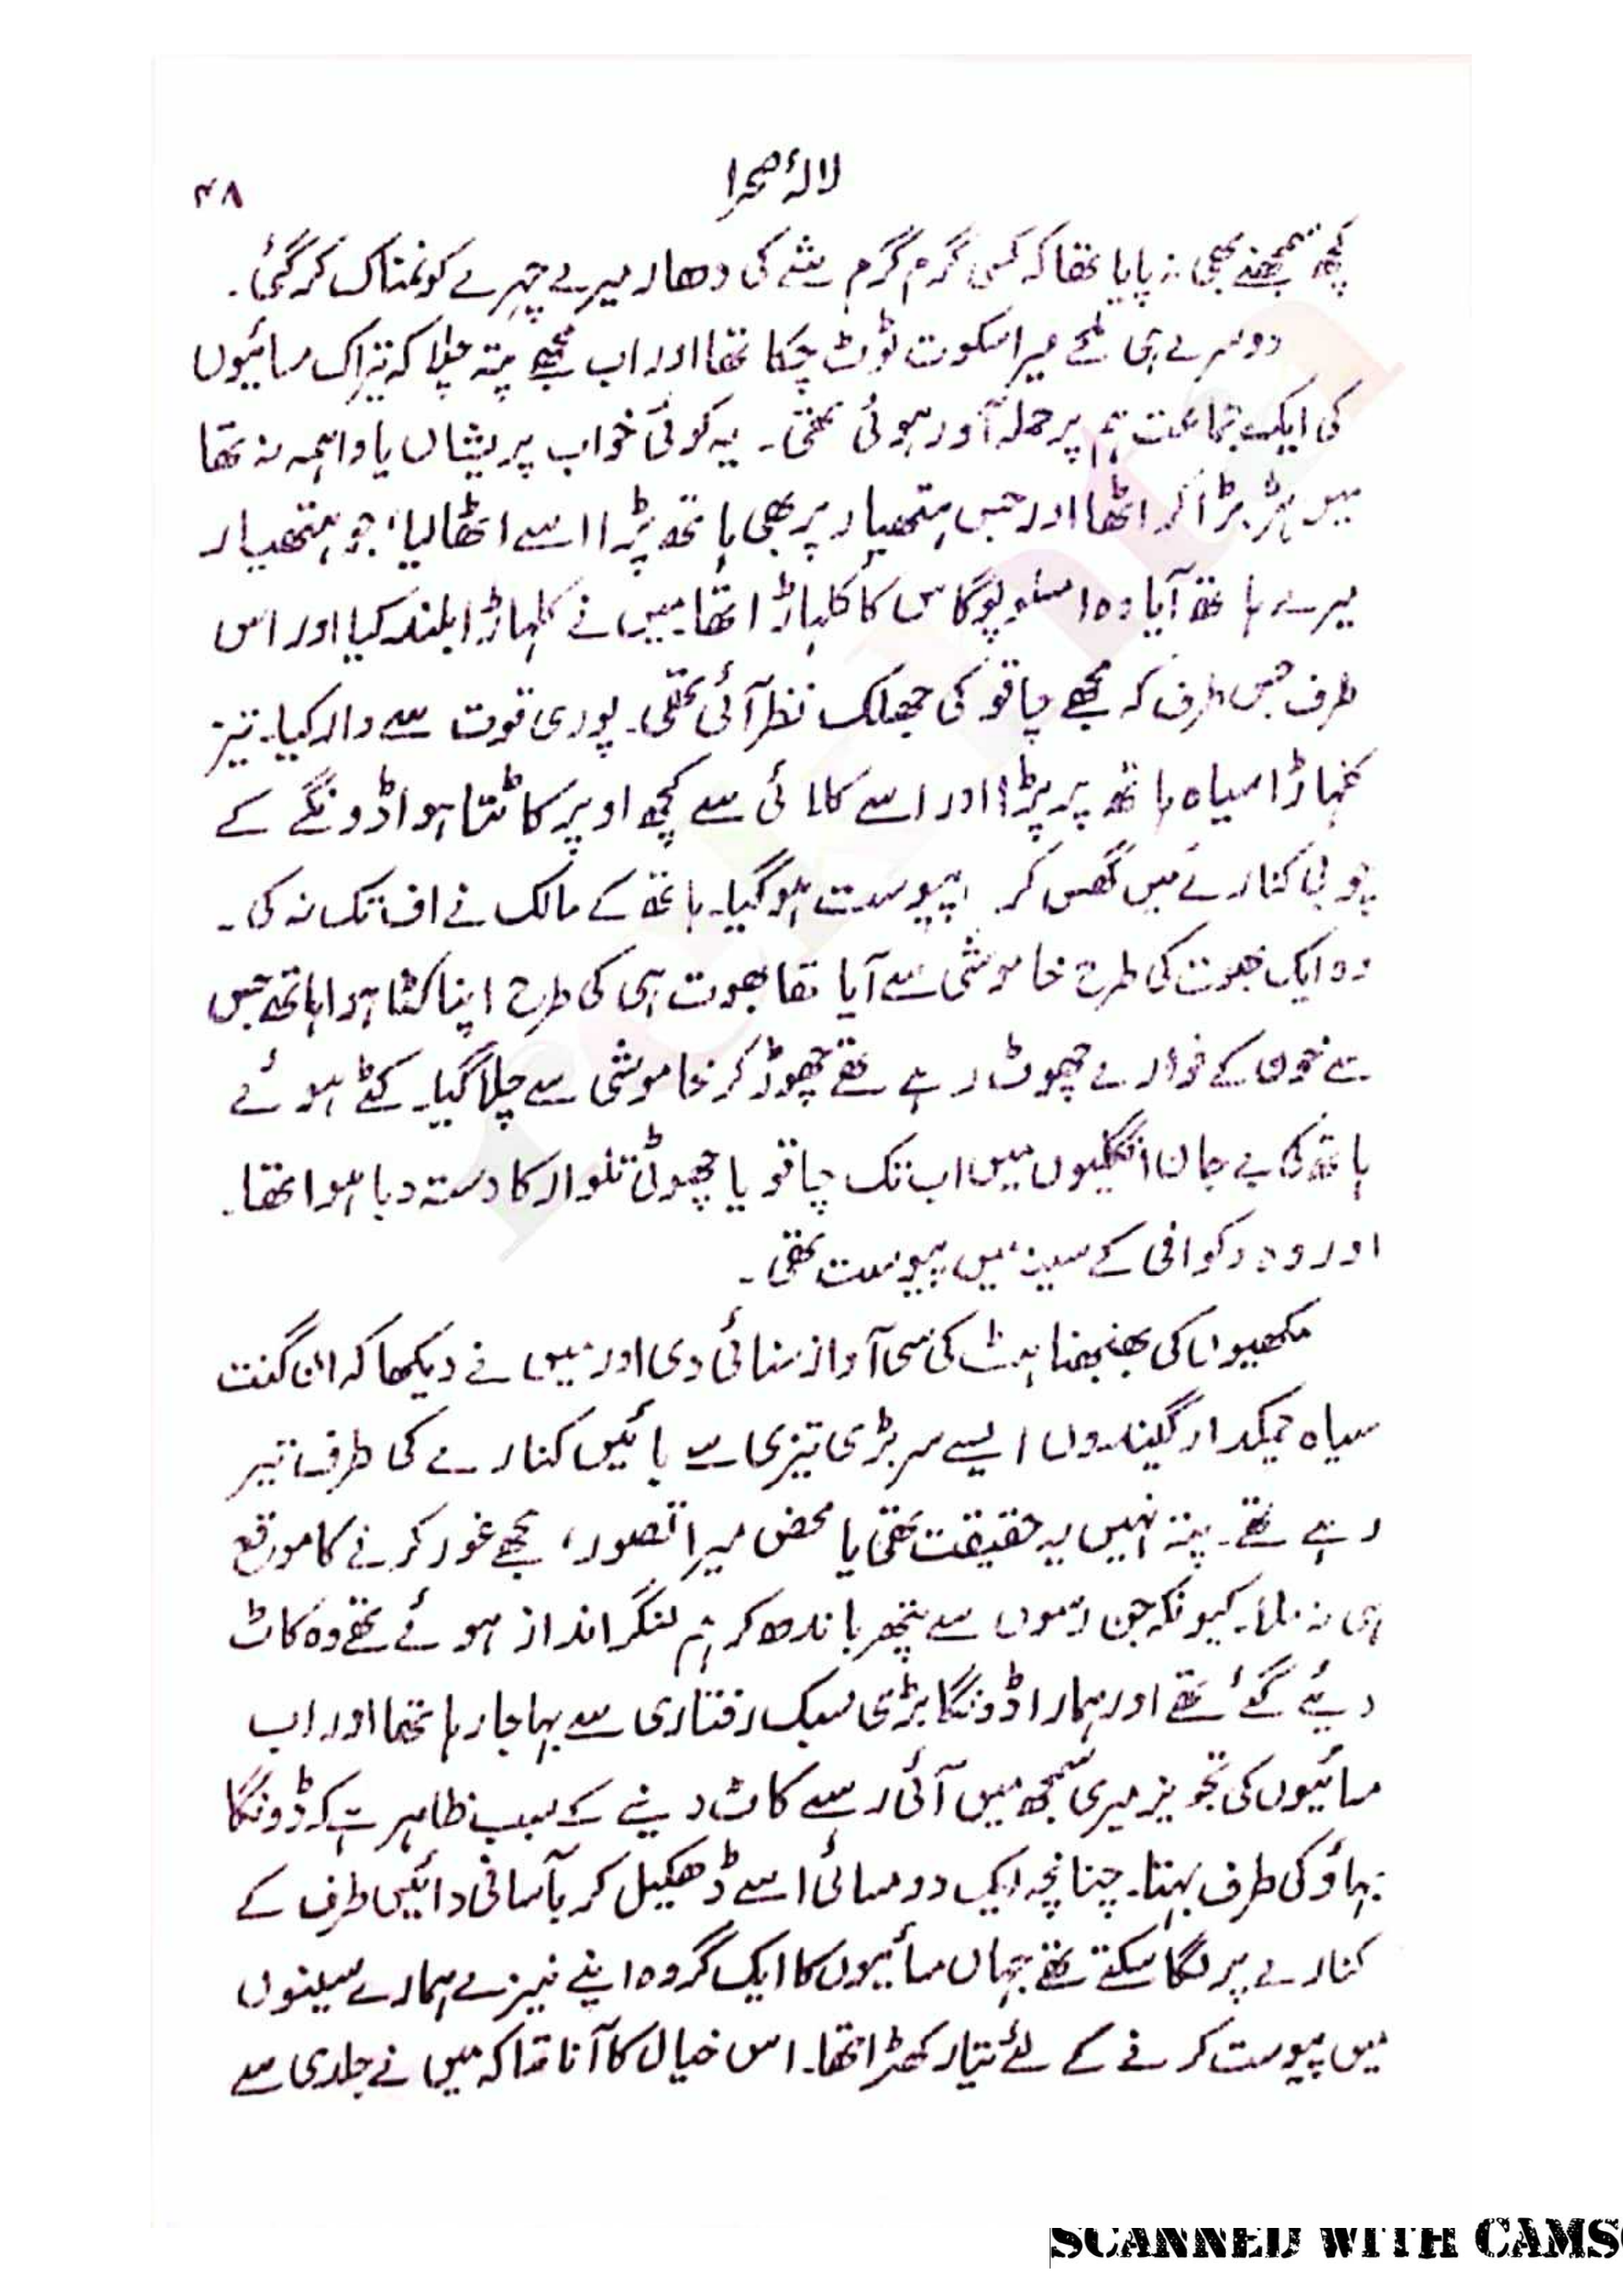 لالۂ صحرا
۴۸
کچھ سمجھنے بھی نہ پایا تھا کہ کسی گرم گرم شے کی دھار میرے چہرے کو نمناک کر گئی۔
دوسرے ہی لمحے میرا سکوت ٹوٹ چکا تھا اور اب مجھے پتہ چلا کہ تیراک سائیوں
کی ایک جماعت ہم پر حملہ آور ہوئی تھی۔ یہ کوئی خواب پریشاں یا واہمہ نہ تھا
میں ہڑبڑا کر اٹھا اور جس ہتھیار پر بھی ہاتھ پڑا اسے اٹھا لیا، جو ہتھیار
میرے ہاتھ آیا وہ امسلوپوگاس کا کلہاڑا تھا میں نے کلہاڑا بلند کیا اور اس
طرف جس طرف کہ مجھے چاقو کی جھلک نظر آئی تھی۔ پوری قوت سے وار کیا۔ تیز
کلہاڑا سیاہ ہاتھ پر پڑا اور اسے کلائی سے کچھ اوپر کاٹتا ہوا ڈونگے کے
چوبی کنارے میں گھس کر پیوست ہو گیا۔ ہاتھ کے مالک نے اف تک نہ کی۔
وہ ایک بھوت کی طرح خاموشی سے آیا تھا بھوت ہی کی طرح اپنا کٹا ہوا ہاتھ جس
سے خون کے فوارے چھوٹ رہے تھے چھوڑ کر خاموشی سے چلا گیا۔ کٹے ہوئے
ہاتھ کی بے جان انگلیوں میں اب تک چاقو یا چھوٹی تلوار کا دستہ دبا ہوا تھا۔
اور وہ کوافی کے سینہ میں پیوست تھی۔
مکھیوں کی بھنبھناہٹ کی سی آواز سنائی دی اور میں نے دیکھا کہ ان گنت
سیاہ چمکدار گیندوں ایسے سر بڑی تیزی سے بائیں کنارے کی طرف تیر
رہے تھے۔ پتہ نہیں یہ حقیقت تھی یا محض میرا تصور، مجھے غور کرنے کا موقع
ہی نہ ملا۔ کیونکہ جن رسوں سے پتھر باندھ کر ہم لنگر انداز ہوئے تھے وہ کاٹ
دیئے گئے تھے اور ہمارا ڈونگا بڑی سبک رفتاری سے بہا جا رہا تھا اور اب
سائیوں کی تجویز میری سمجھ میں آئی رسے کاٹ دینے کے سبب ظاہر ہے کہ ڈونگا
بہاؤ کی طرف بہتا۔ چنانچہ ایک دو سائی اسے ڈھکیل کر بآسانی دائیں طرف کے
کنارے پر لگا سکتے تھے جہاں سائیوں کا ایک گروہ اپنے نیزے ہمارے سینوں
میں پیوست کرنے کے لئے تیار کھڑا تھا۔ اس خیال کا آنا تھا کہ میں نے جلدی سے
SCANNED WITH CAMS